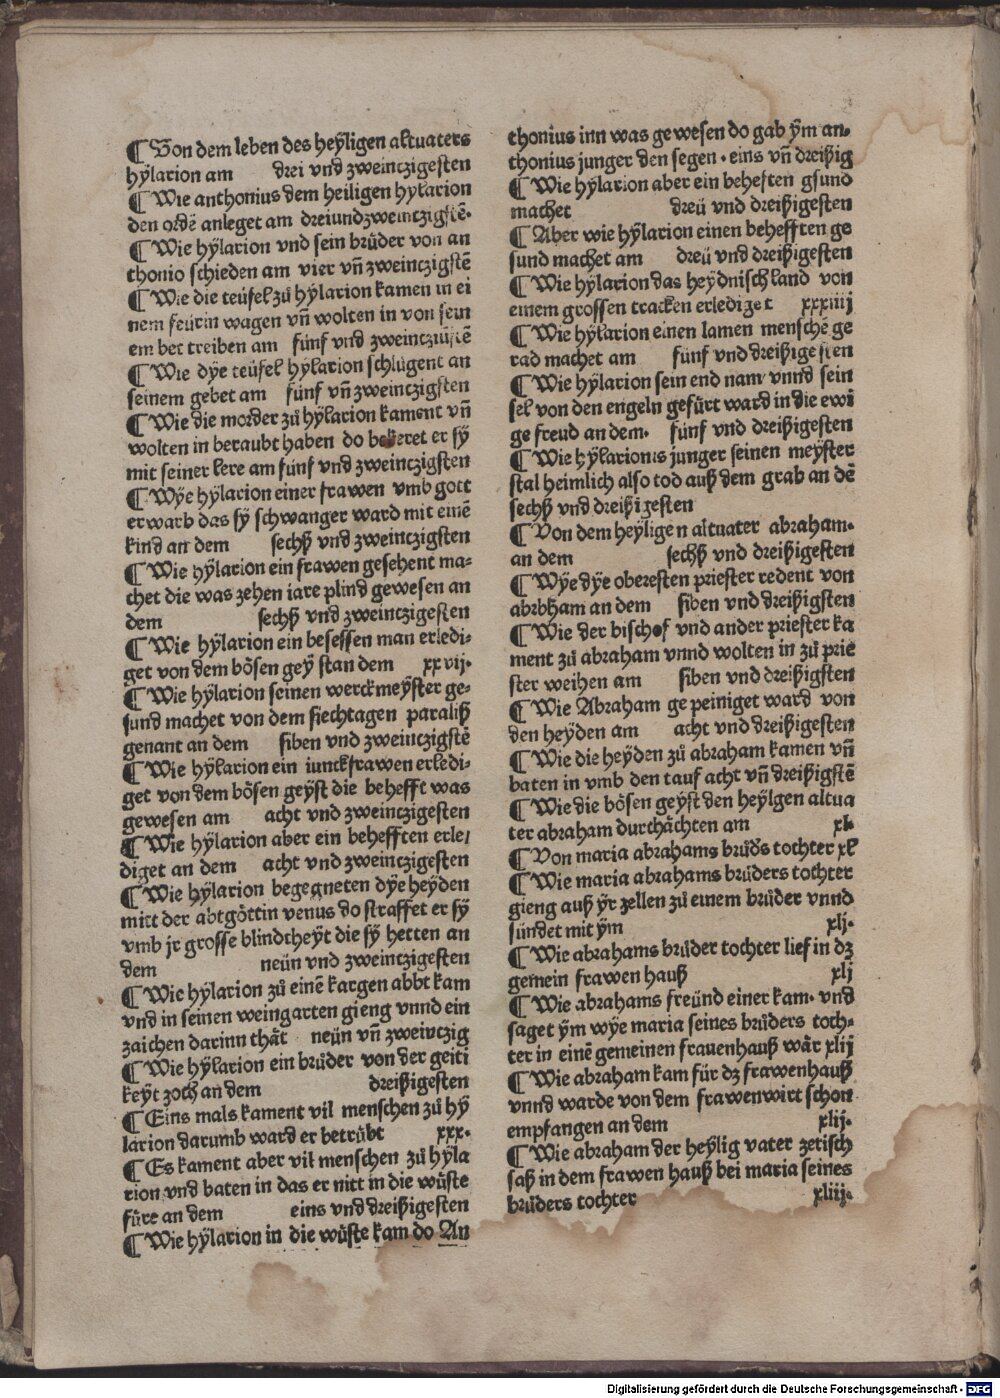 ¶ Von dem leben des heÿligen altuaters
hÿlarion am drei vnd zweintzigesten
¶ Wie anthonius dem heiligen hylarion
den ordē anleget am dreiundzweintzigstē.
¶ Wie hÿlarion vnd sein brůder von an
thonio schieden am vier vn̄ zweinczigstē
¶ Wie die teüfel zů hÿlarion kamen in ei
nem feürin wagen vn̄ wolten in von sein
em bet treiben am fünf vnd zweintzigstē
¶ Wie dÿe teüfel hÿlarion schlůgent an
seinem gebet am fünf vn̄ zweintzigsten
¶ Wie die morder zů hÿlarion kament vn̄
wolten in beraubt haben do bekeret er sÿ
mit seiner lere am fünf vnd zweintzigsten
¶ Wÿe hÿlarion einer frawen vmb gott
erwarb das sÿ schwanger ward mit einē
kind an dem sechß vnd zweintzigsten
¶ Wie hÿlarion ein frawen gesehent ma-
chet die was zehen iare plind gewesen an
dem sechß vnd zweintzigesten
¶ Wie hÿlarion ein besessen man erledi-
get von dem bösen geÿ stan dem xxvij.
¶ Wie hÿlarion seinen werckmeÿster ge-
sund machet von dem siechtagen paraliß
genant an dem siben vnd zweintzigstē
¶ Wie hÿlarion ein iunckfrawen erledi-
get von dem bösen geÿst die behefft was
gewesen am acht vnd zweintzigesten
¶ Wie hÿlarion aber ein behefften erle/
diget an dem acht vnd zweintzigesten
¶ Wie hÿlarion begegneten dÿe heÿden
mitt der abtgöttin venus do straffet er sÿ
vmb jr grosse blindtheÿt die sÿ hetten an
dem neün vnd zweintzigesten
¶ Wie hÿlarion zů einē kargen abbt kam
vnd in seinen weingarten gieng vnnd ein
zaichen darinn thät neün vn̄ zweintzig
¶ Wie hÿlarion ein brůder von der geiti
keÿt zoch an dem dreißigesten
¶ Eins mals kament vil menschen zů hÿ
larion darumb ward er betrůbt xxx.
¶ Es kament aber vil menschen zů hÿla
rion vnd baten in das er nitt in die wůste
fůre an dem eins vnd dreißigesten
¶ Wie hÿlarion in die wůste kam do An
thonius inn was gewesen do gab ÿm an-
thonius junger den segen. eins vn̄ dreißig
¶ Wie hÿlarion aber ein beheften gsund
machet dreü vnd dreißigesten
¶ Aber wie hÿlarion einen behefften ge
sund machet am dreü vnd dreißigesten
¶ Wie hÿlarion das heÿdnisch land von
einem grossen tracken erlediget xxxiiij
¶ Wie hÿlarion einen lamen menschē ge
rad machet am fünf vnd dreißigesten
¶ Wie hÿlarion sein end nam vnnd sein
sel von den engeln gefůrt ward in die ewi
ge freud an dem. fünf vnd dreißigesten
¶ Wie hÿlarionis junger seinen meÿster
stal heimlich also tod auß dem grab an dē
sechß vnd dreißigesten
¶ Von dem heÿligen altuater abraham.
an dem sechß vnd dreißigesten
¶ Wÿe dÿe oberesten priester redent von
abrbham an dem siben vnd dreißigsten
¶ Wie der bischof vnd ander priester ka
ment zů abraham vnnd wolten in zů prie
ster weihen am siben vnd dreißigsten
¶ Wie Abraham ge peiniget ward von
den heyden am acht vnd dreißigesten
¶ Wie die heÿden zů abraham kamen vn̄
baten in vmb den tauf acht vn̄ dreißigstē
¶ Wie die bösen geÿst den heÿlgen altua
ter abraham durchächten am xl.
¶ Von maria abrahams brůds tochter xl
¶ Wie maria abrahams brůders tochter
gieng auß ÿr zellen zů einem brůder vnnd
sündet mit ÿm xlj.
¶ Wie abrahams brůder tochter lief in dz
gemein frawen hauß xlj
¶ Wie abrahams freünd einer kam. vnd
saget ÿm wÿe maria seines brůders toch-
ter in einē gemeinen frauenhauß wär xlij
¶ Wie abraham kam für dz frawenhauß
vnnd warde von dem frawenwirt schon
empfangen an dem xlij.
¶ Wie abraham der heÿlig vater zetisch
saß in dem frawen hauß bei maria seines
brůders tochter xliij.
Digitalisierung gefördert durch die Deutsche Forschungsgemeinschaft - DFG